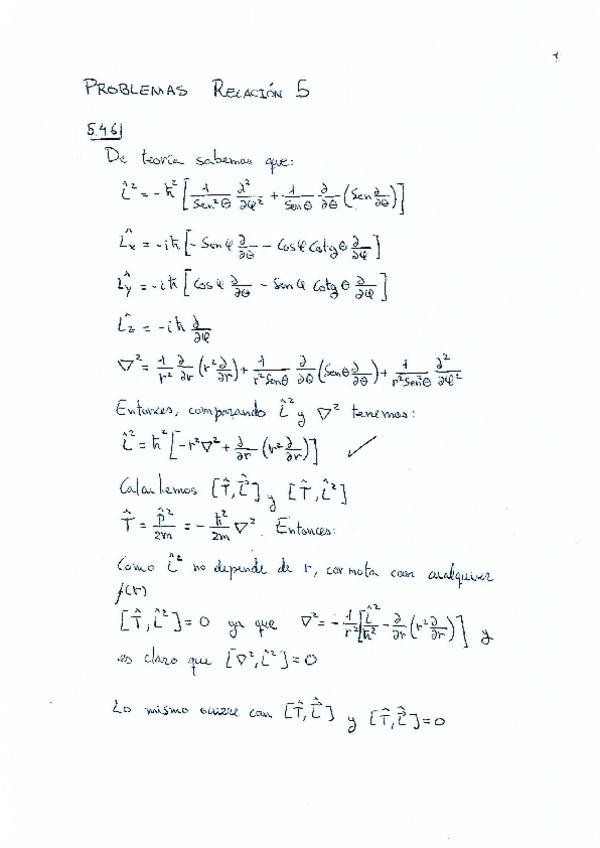 PROBLEMAS RELACIÓN 5
5.46|
De teoría sabemos que:
L̂² = -ħ² [ 1/Sen²θ ∂²/∂φ² + 1/Senθ ∂/∂θ (Sen ∂/∂θ) ]
L̂x = -iħ [ -Senφ ∂/∂θ - Cosφ Cotgθ ∂/∂φ ]
L̂y = -iħ [ Cosφ ∂/∂θ - Senφ Cotgθ ∂/∂φ ]
L̂z = -iħ ∂/∂φ
∇² = 1/r² ∂/∂r (r² ∂/∂r) + 1/r²Senθ ∂/∂θ (Senθ ∂/∂θ) + 1/r²Sen²θ ∂²/∂φ²
Entonces, comparando L̂² y ∇² tenemos:
L̂² = ħ² [ -r²∇² + ∂/∂r (r² ∂/∂r) ] ✓
Calculemos [T̂, L̂⃗] y [T̂, L̂²]
T̂ = p̂²/2m = -ħ²/2m ∇². Entonces:
Como L̂² no depende de r, conmuta con cualquiver
f(r)
[T̂, L̂²] = 0 ya que ∇² = -1/r² [ L̂²/ħ² - ∂/∂r (r² ∂/∂r) ] y
es claro que [∇², L̂²] = 0
Lo mismo ocurre con [T̂, L̂⃗] y [T̂, L̂⃗] = 0